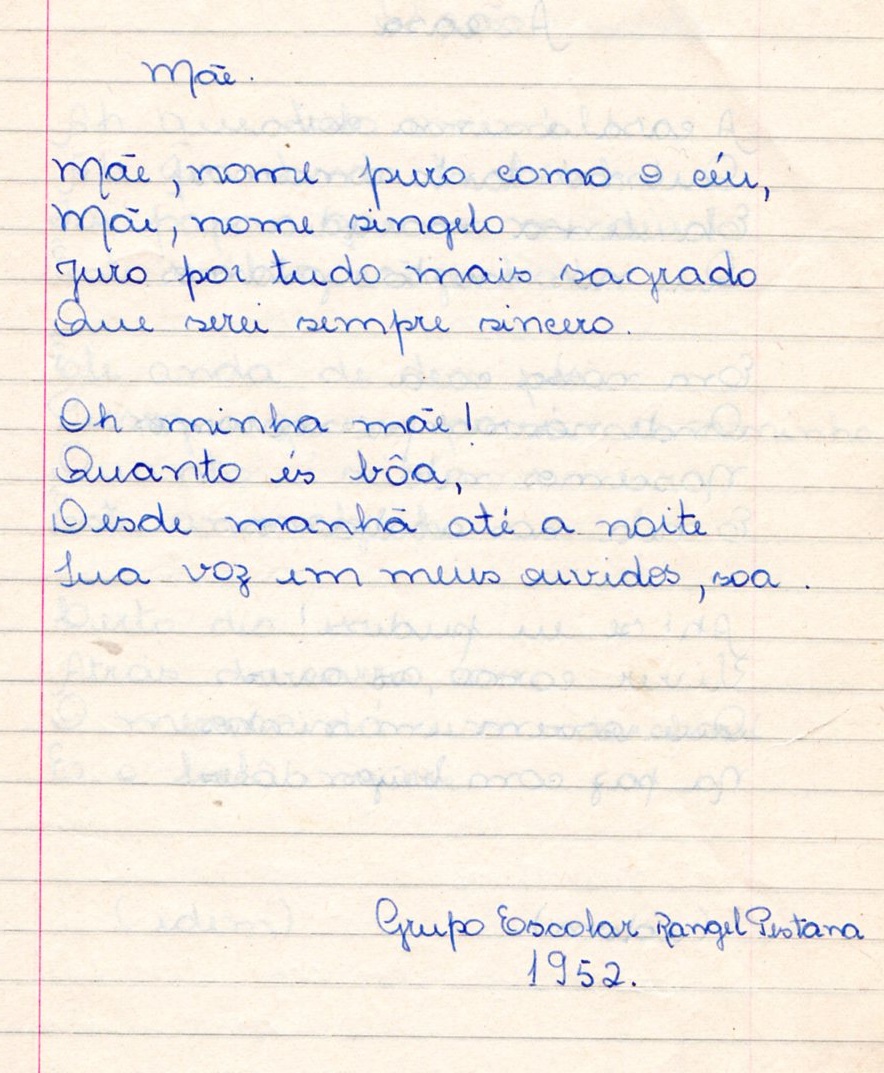 Mãe.
Mãe, nome puro como o céu,
Mãe, nome singelo
Juro por tudo mais sagrado
Que serei sempre sincero.
Oh minha mãe!
Quanto és bôa,
Desde manhã até a noite
Sua voz em meus ouvidos, soa.
Grupo Escolar Rangel Pestana
1952.